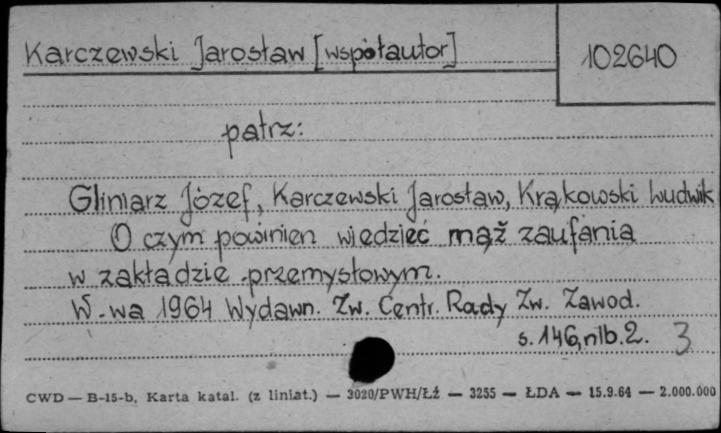 Karczewski Jarosław [współautor]
102640
patrz:
Gliniarz Józef, Karczewski Jarosław, Krąkowski Ludwik
O czym powinien wiedzieć mąż zaufania
w zakładzie przemysłowym.
W-wa 1964 Wydawn. Zw. Centr. Rady Zw. Zawod.
s. 146, nlb. 2. 3
CWD — B-15-b, Karta katal. (z liniat.) — 3020/PWH/Łź — 3255 — ŁDA — 15.9.64 — 2.000.000